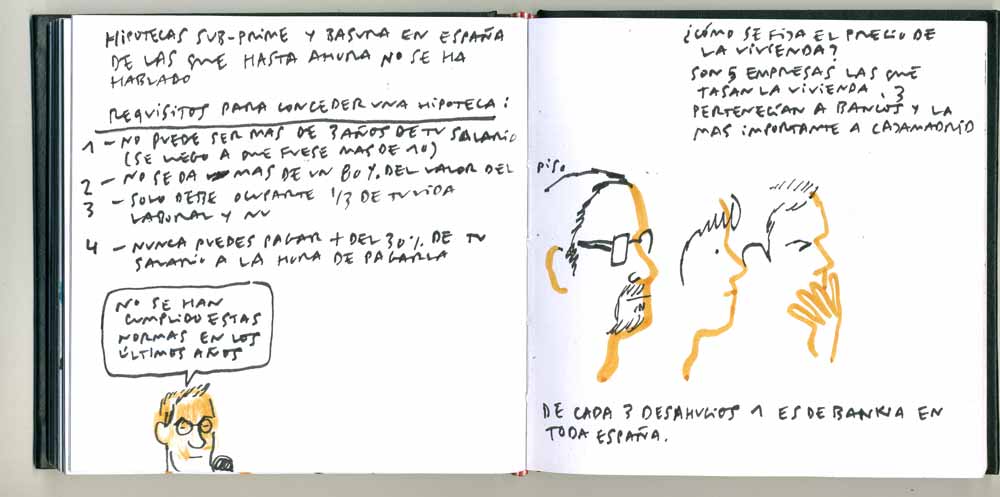 HIPOTECAS SUB-PRIME Y BASURA EN ESPAÑA
DE LAS QUE HASTA AHORA NO SE HA
HABLADO
REQUISITOS PARA CONCEDER UNA HIPOTECA:
1 - NO PUEDE SER MAS DE 3 AÑOS DE TU SALARIO
(SE LLEGO A QUE FUESE MAS DE 10)
2 - NO SE DA MAS DE UN 80% DEL VALOR DEL
3 - SOLO DEBE OCUPARTE 1/3 DE TU VIDA
LABORAL Y NO
4 - NUNCA PUEDES PAGAR + DEL 30% DE TU
SALARIO A LA HORA DE PAGARLA
NO SE HAN
CUMPLIDO ESTAS
NORMAS EN LOS
ÚLTIMOS AÑOS
¿CÓMO SE FIJA EL PRECIO DE
LA VIVIENDA?
SON 5 EMPRESAS LAS QUE
TASAN LA VIVIENDA. 3
PERTENECÍAN A BANCOS Y LA
MAS IMPORTANTE A CAJAMADRID
PISO
DE CADA 3 DESAHUCIOS 1 ES DE BANKIA EN
TODA ESPAÑA.